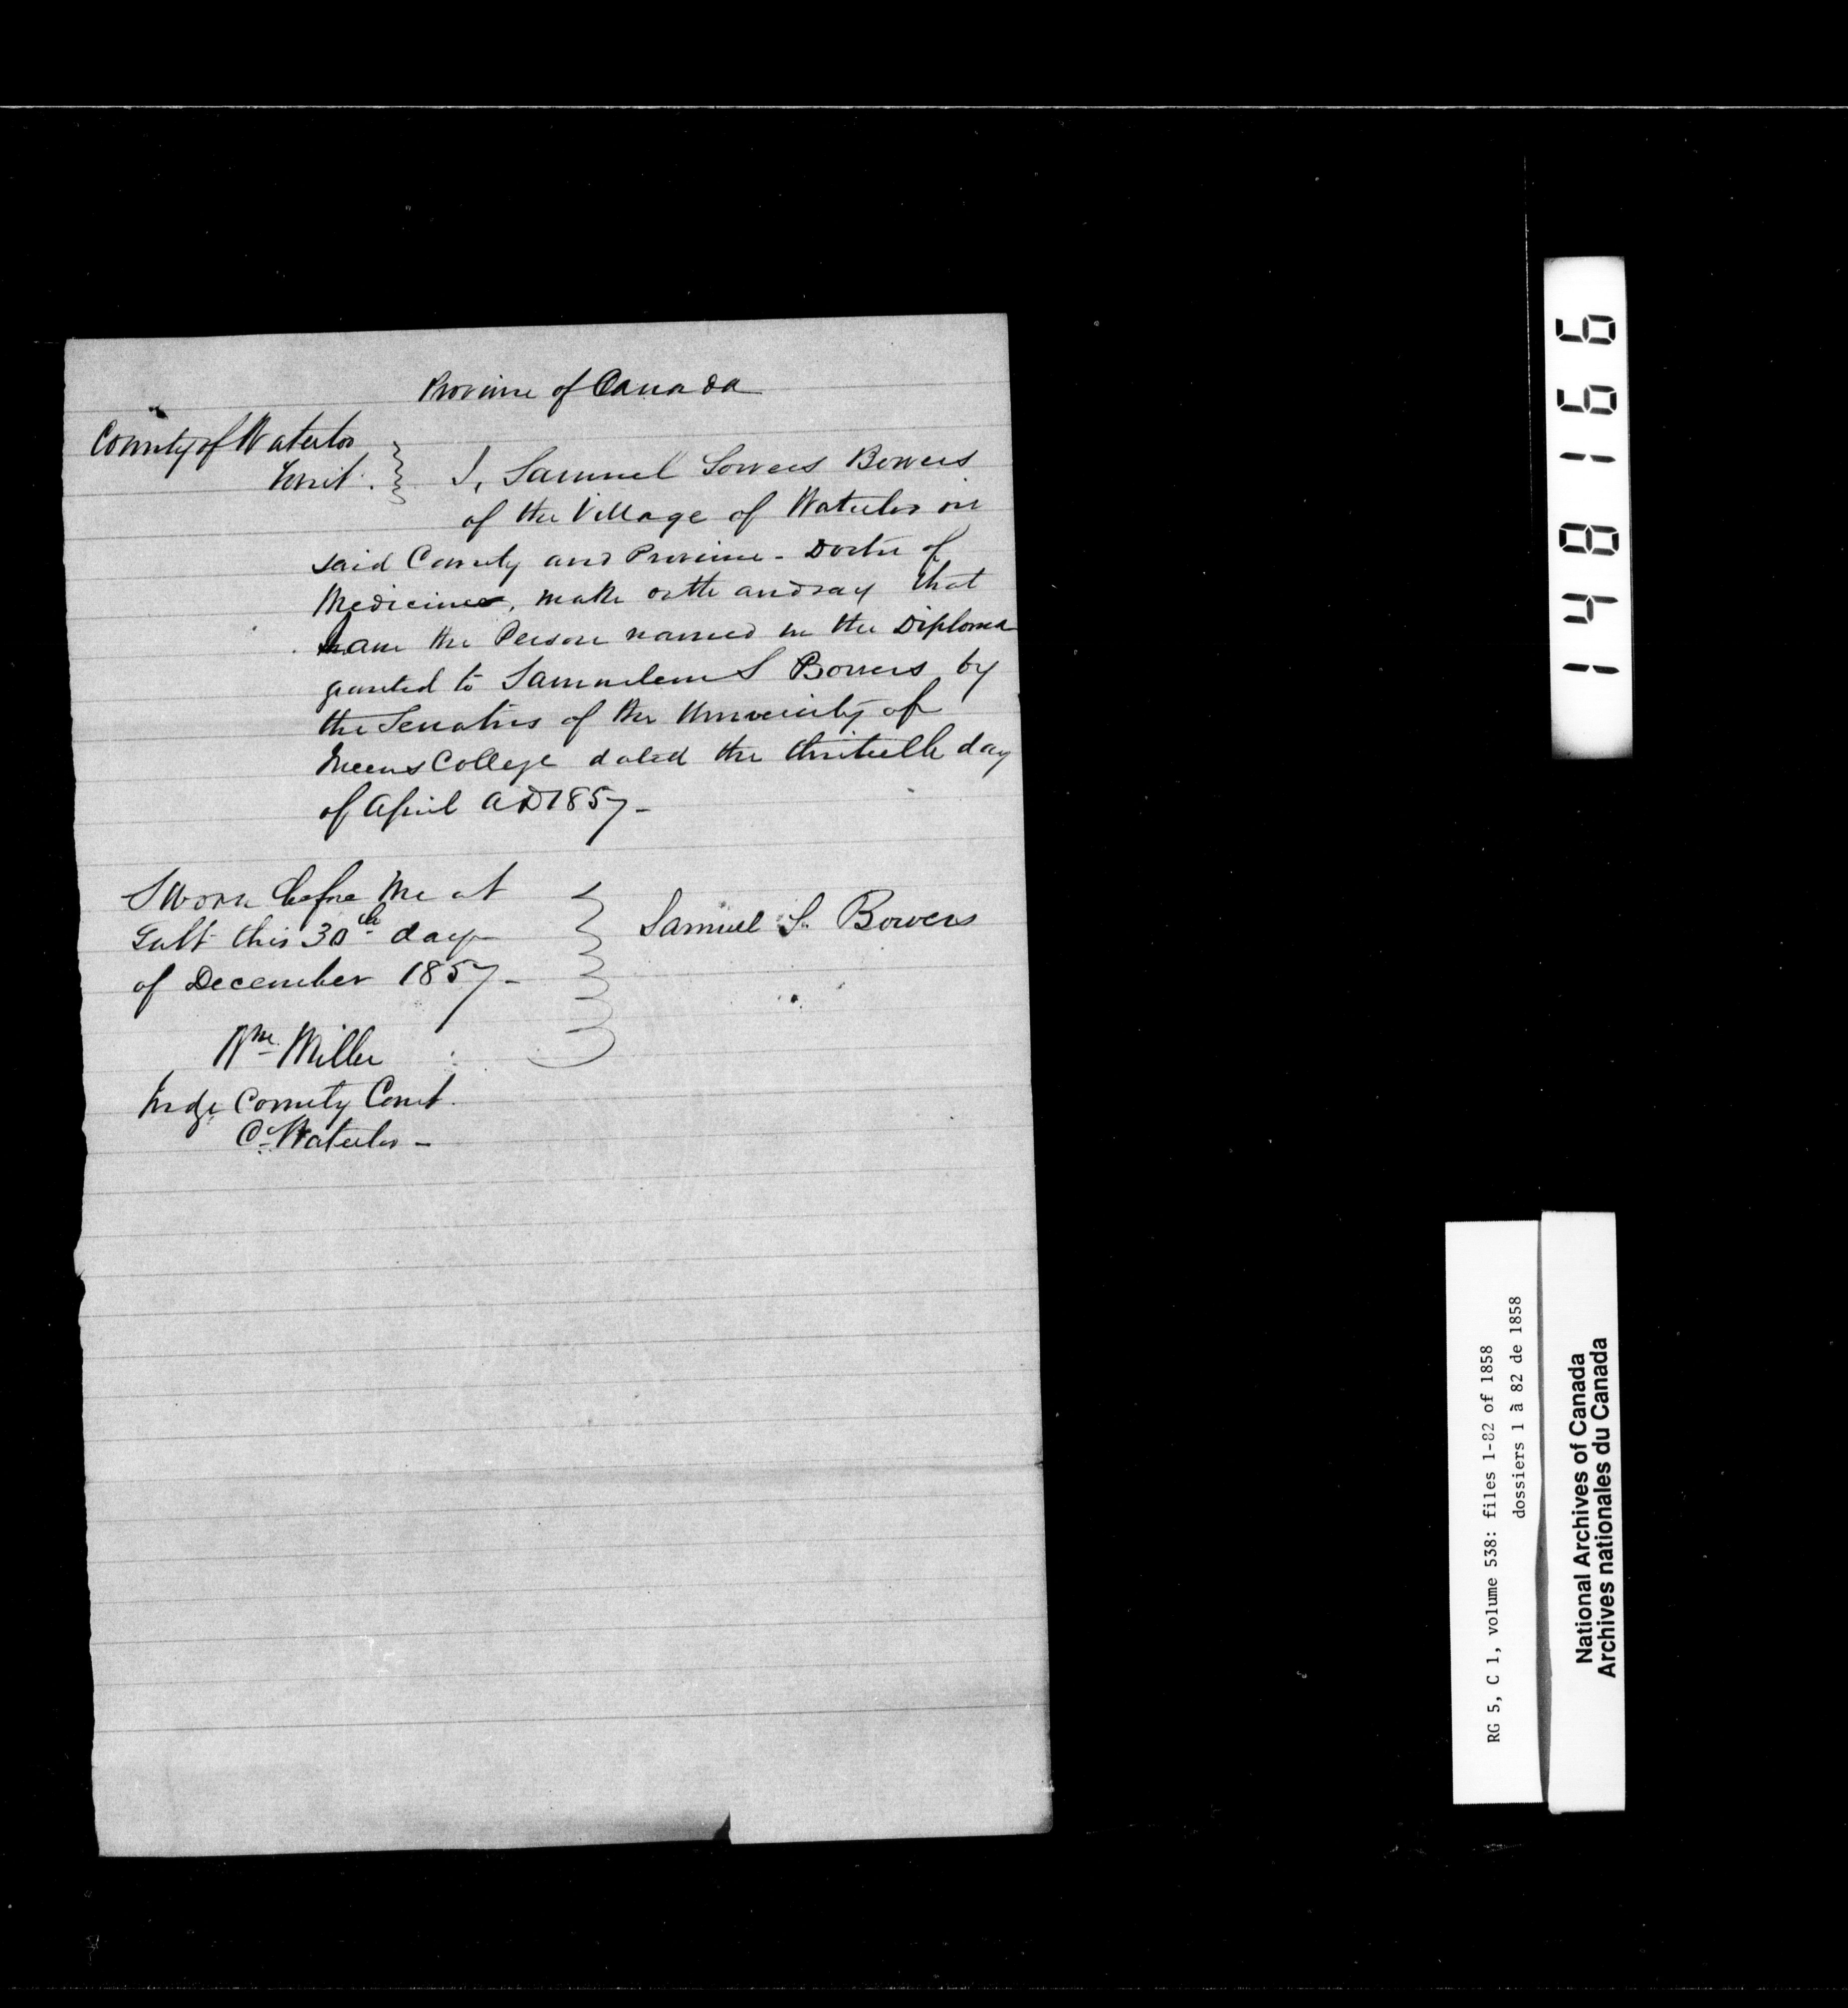 Province of Canada
County of Waterloo
To wit.
I, Samuel Sowers Bowers
of the Village of Waterloo in
said County and Province - Doctor of
Medicine, make oath and say that
I am the Person named in the Diploma
granted to Samuelem S Bowers by
the Senatus of the University of
Queens College dated the thirtieth day
of April AD 1857-
Sworn before me at
Galt this 30th day
of December 1857-
Samuel S. Bowers
Wm Miller
Judge County Court.
Cy Waterloo -
148166
RG 5, C 1, volume 538: files 1-82 of 1858
dossiers 1 à 82 de 1858
National Archives of Canada
Archives nationales du Canada